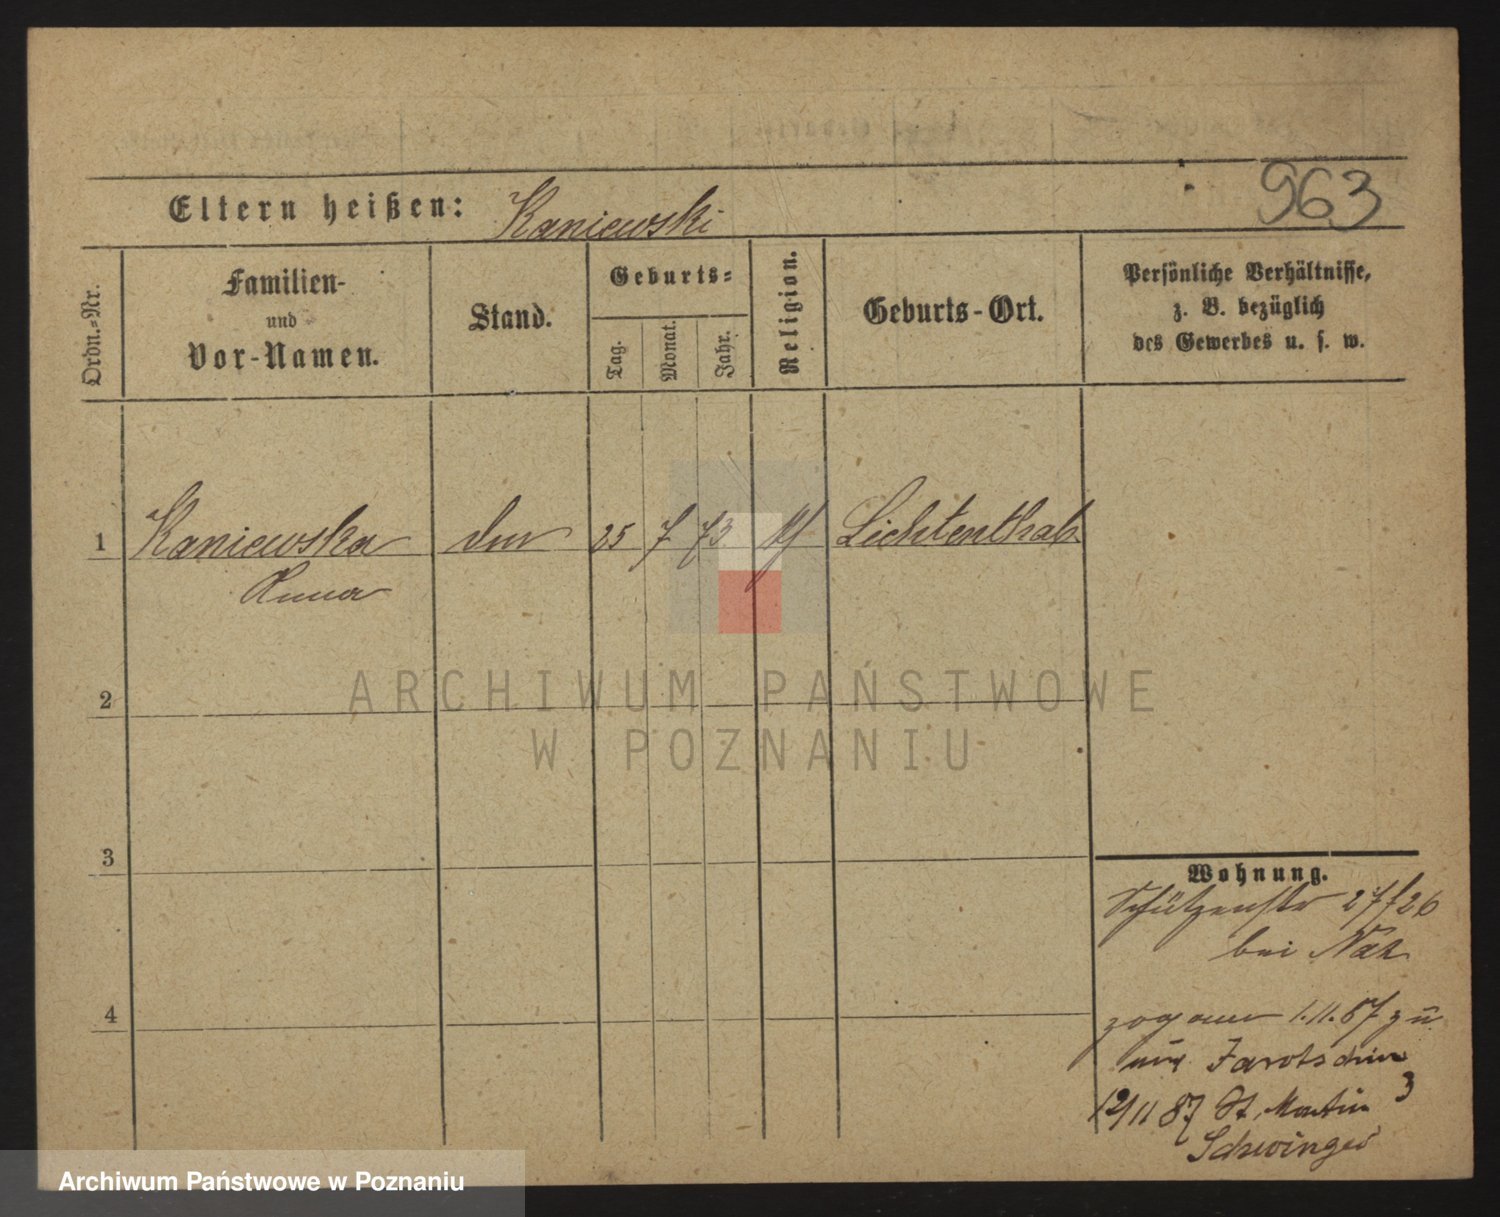 963
Eltern heißen: Kaniewski
Ordn.-Nr.
Familien-
und
Vor-Namen.
Stand.
Geburts-
Tag.
Monat.
Jahr.
Religion.
Geburts-Ort.
Persönliche Verhältnisse,
z. B. bezüglich
des Gewerbes u. s. w.
1 Kaniewska 25 7 73 Lichtenthal
Anna
2
3
4
Wohnung.
Schützenstr 27/26
bei
1.11.87 zu
Jarotschin
12/11 87 St. Martin 3
Schwinger
ARCHIWUM PAŃSTWOWE
W POZNANIU
Archiwum Państwowe w Poznaniu